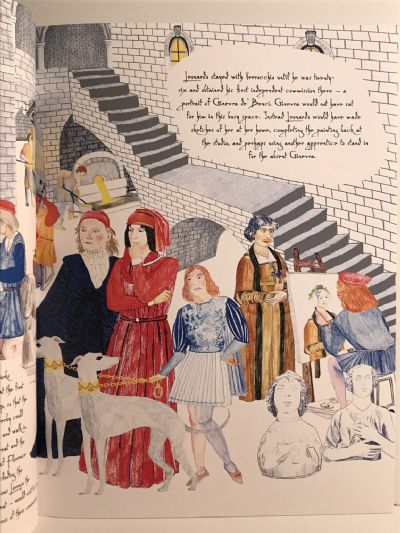 Leonardo stayed with Verrocchio until he was twenty-
six and obtained his first independent commission there – a
portrait of Ginevra de' Benci. Ginevra would not have sat
for him in this busy space. Instead Leonardo would have made
sketches of her at her home, completing the painting back at
the studio, and perhaps using another apprentice to stand in
for the absent Ginevra.
the first
so that the
could
and walk in
and the
Florence
including the
Leonardo the
would